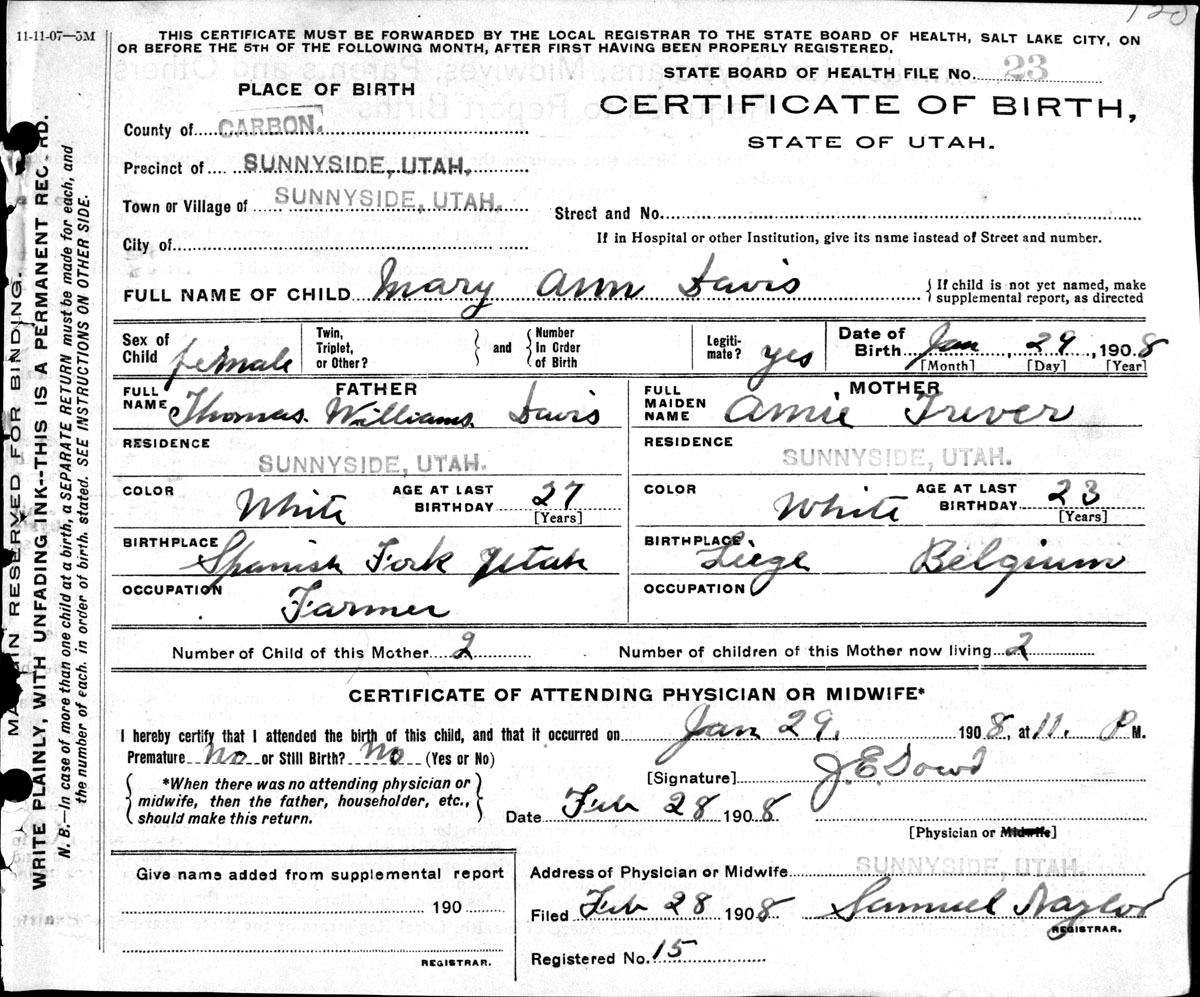 120
11-11-07—5M
THIS CERTIFICATE MUST BE FORWARDED BY THE LOCAL REGISTRAR TO THE STATE BOARD OF HEALTH, SALT LAKE CITY, ON
OR BEFORE THE 5TH OF THE FOLLOWING MONTH, AFTER FIRST HAVING BEEN PROPERLY REGISTERED.
STATE BOARD OF HEALTH FILE No. 23
PLACE OF BIRTH
CERTIFICATE OF BIRTH,
STATE OF UTAH.
County of CARBON.
Precinct of SUNNYSIDE, UTAH.
Town or Village of SUNNYSIDE, UTAH.
Street and No.
City of
If in Hospital or other Institution, give its name instead of Street and number.
FULL NAME OF CHILD Mary Ann Davis
{ If child is not yet named, make
supplemental report, as directed
Sex of Child female
Twin, Triplet, or Other? } and { Number In Order of Birth
Legiti-mate? yes
Date of Birth Jan, 29, 1908
[Month] [Day] [Year]
FATHER
FULL NAME Thomas. Williams. Davis
MOTHER
FULL MAIDEN NAME Annie Trever
RESIDENCE
SUNNYSIDE, UTAH.
RESIDENCE
SUNNYSIDE, UTAH.
COLOR White AGE AT LAST BIRTHDAY 27
[Years]
COLOR White AGE AT LAST BIRTHDAY 23
[Years]
BIRTHPLACE Spanish Fork Utah
BIRTHPLACE Liége Belgium
OCCUPATION Farmer
OCCUPATION
Number of Child of this Mother 2
Number of children of this Mother now living 2
CERTIFICATE OF ATTENDING PHYSICIAN OR MIDWIFE*
I hereby certify that I attended the birth of this child, and that it occurred on Jan 29. 1908, at 11. P M.
Premature No or Still Birth? No (Yes or No)
{ *When there was no attending physician or
midwife, then the father, householder, etc.,
should make this return. }
[Signature] J. E. Dowd
Date Feb 28 1908
[Physician or Midwife]
Give name added from supplemental report
190
REGISTRAR.
Address of Physician or Midwife SUNNYSIDE, UTAH.
Filed Feb 28 1908 Samuel Naylor
REGISTRAR.
Registered No. 15
MARGIN RESERVED FOR BINDING.
WRITE PLAINLY, WITH UNFADING INK--THIS IS A PERMANENT RECORD.
N. B.—In case of more than one child at a birth, a SEPARATE RETURN must be made for each, and
the number of each, in order of birth, stated. SEE INSTRUCTIONS ON OTHER SIDE.